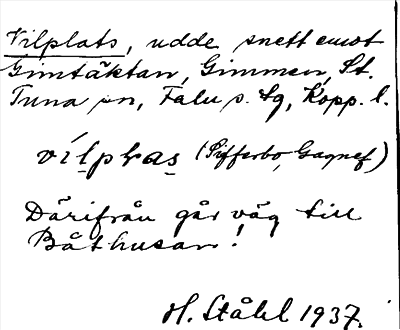 Vilplats, udde snett emot
Gimtäktan, Gimmen, St.
Tuna sn, Falu s. tg, Kopp. l.
vílpḷas (Sifferbo, Gagnef)
Därifrån går väg till
Båthusan!
H. Ståhl 1937.